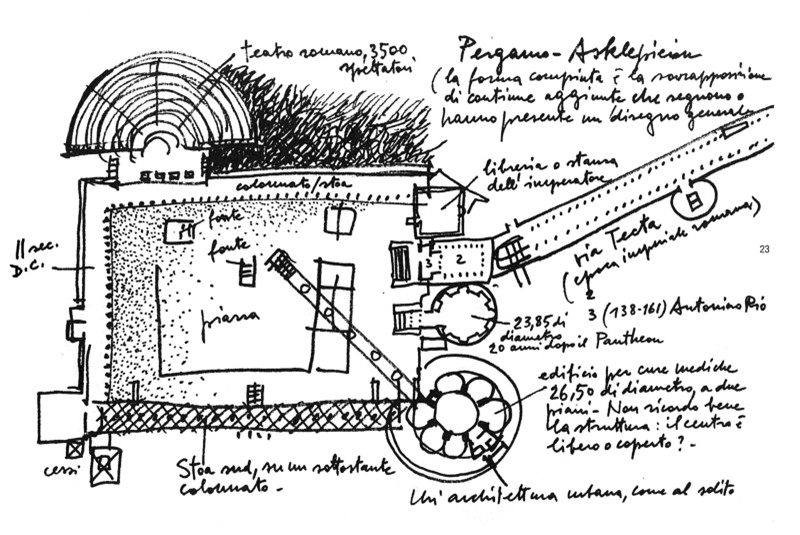 teatro romano, 3500
spettatori
Pergamo - Asklepieion
(la forma compiuta è la sovrapposizione
di continue aggiunte che segnono o
hanno presente un disegno generale
libreria o stanza
dell'imperatore
colonnato/stoa
fonte
fonte
II sec.
D.C.
piazza
3
2
via Tecta
(epoca imperiale romana)
23
2
3 (138-161) Antonino Pio
23,85 di
diametro
20 anni dopo il Pantheon
edificio per cure mediche
26,50 di diametro, a due
piani - Non ricordo bene
la struttura: il centro è
libero o coperto? -
cessi
Stoa sud, su un sottostante
colonnato -
Un'architettura urbana, come al solito